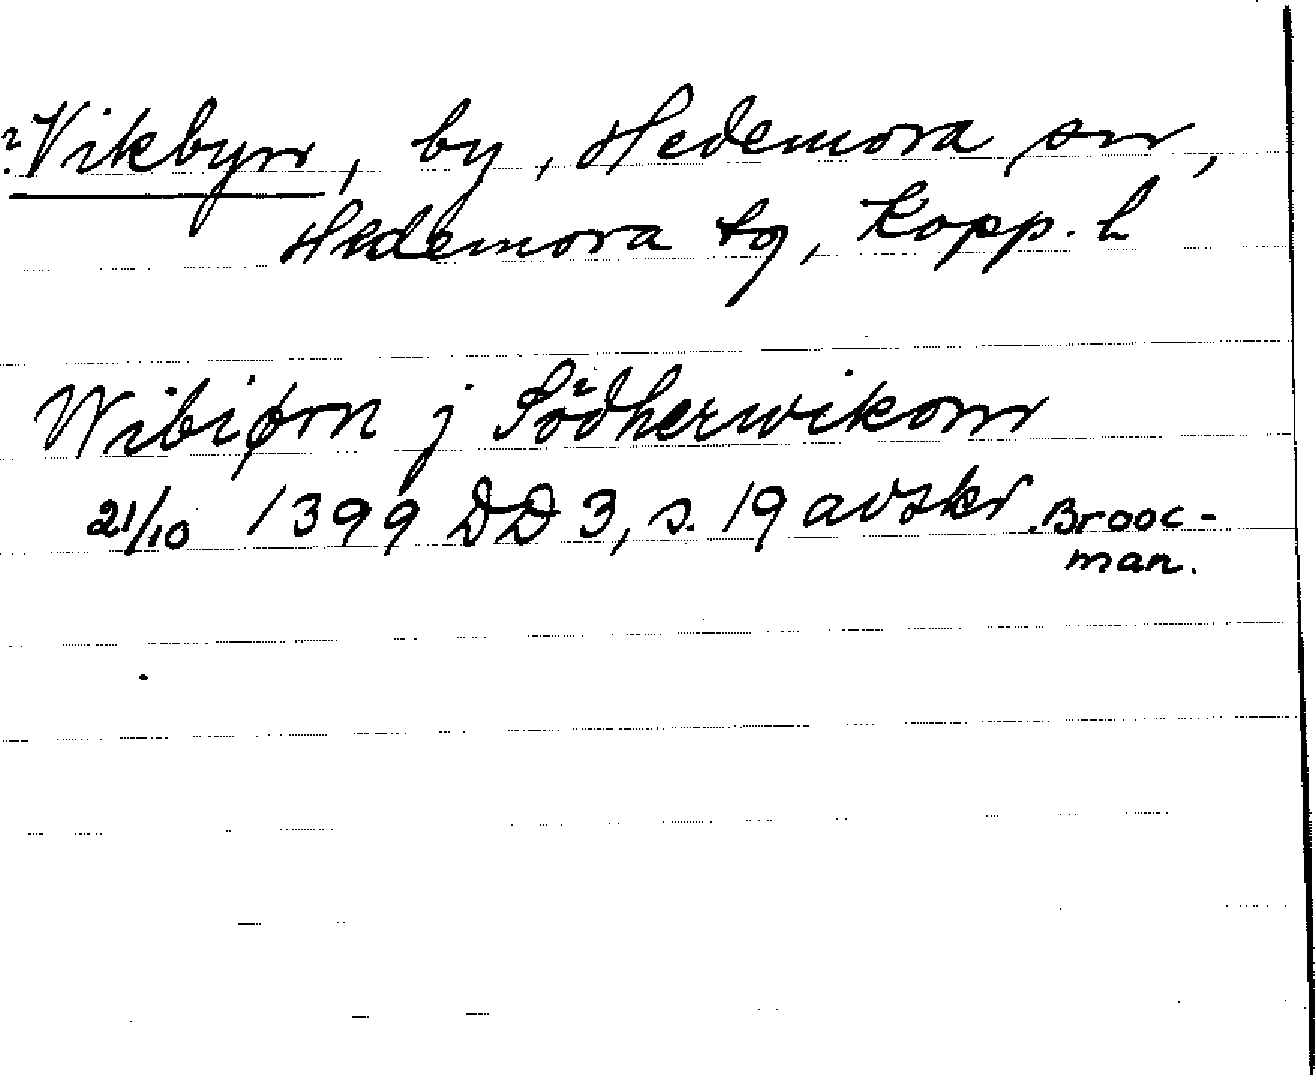 ? Vikbyn, by, Hedemora sn,
Hedemora tg, Kopp. l
Wibiørn j Södherwikom
21/10 1399 DD 3, s. 19 avskr. Brooc-
man.